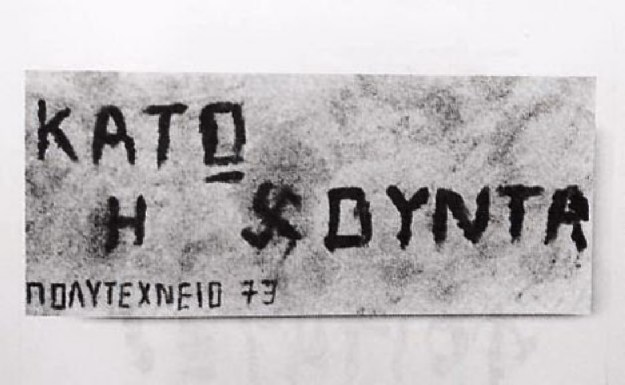 ΚΑΤΩ
Η 卐ΟΥΝΤΑ
ΠΟΛΥΤΕΧΝΕΙΟ 73